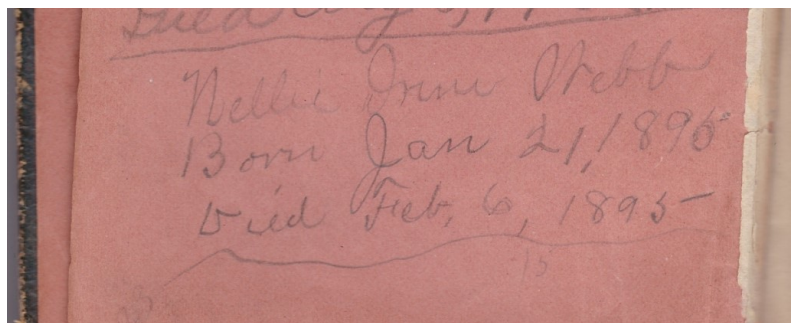 Died Aug
Nellie Irene Webb
Born Jan 21, 1895
Died Feb. 6, 1895